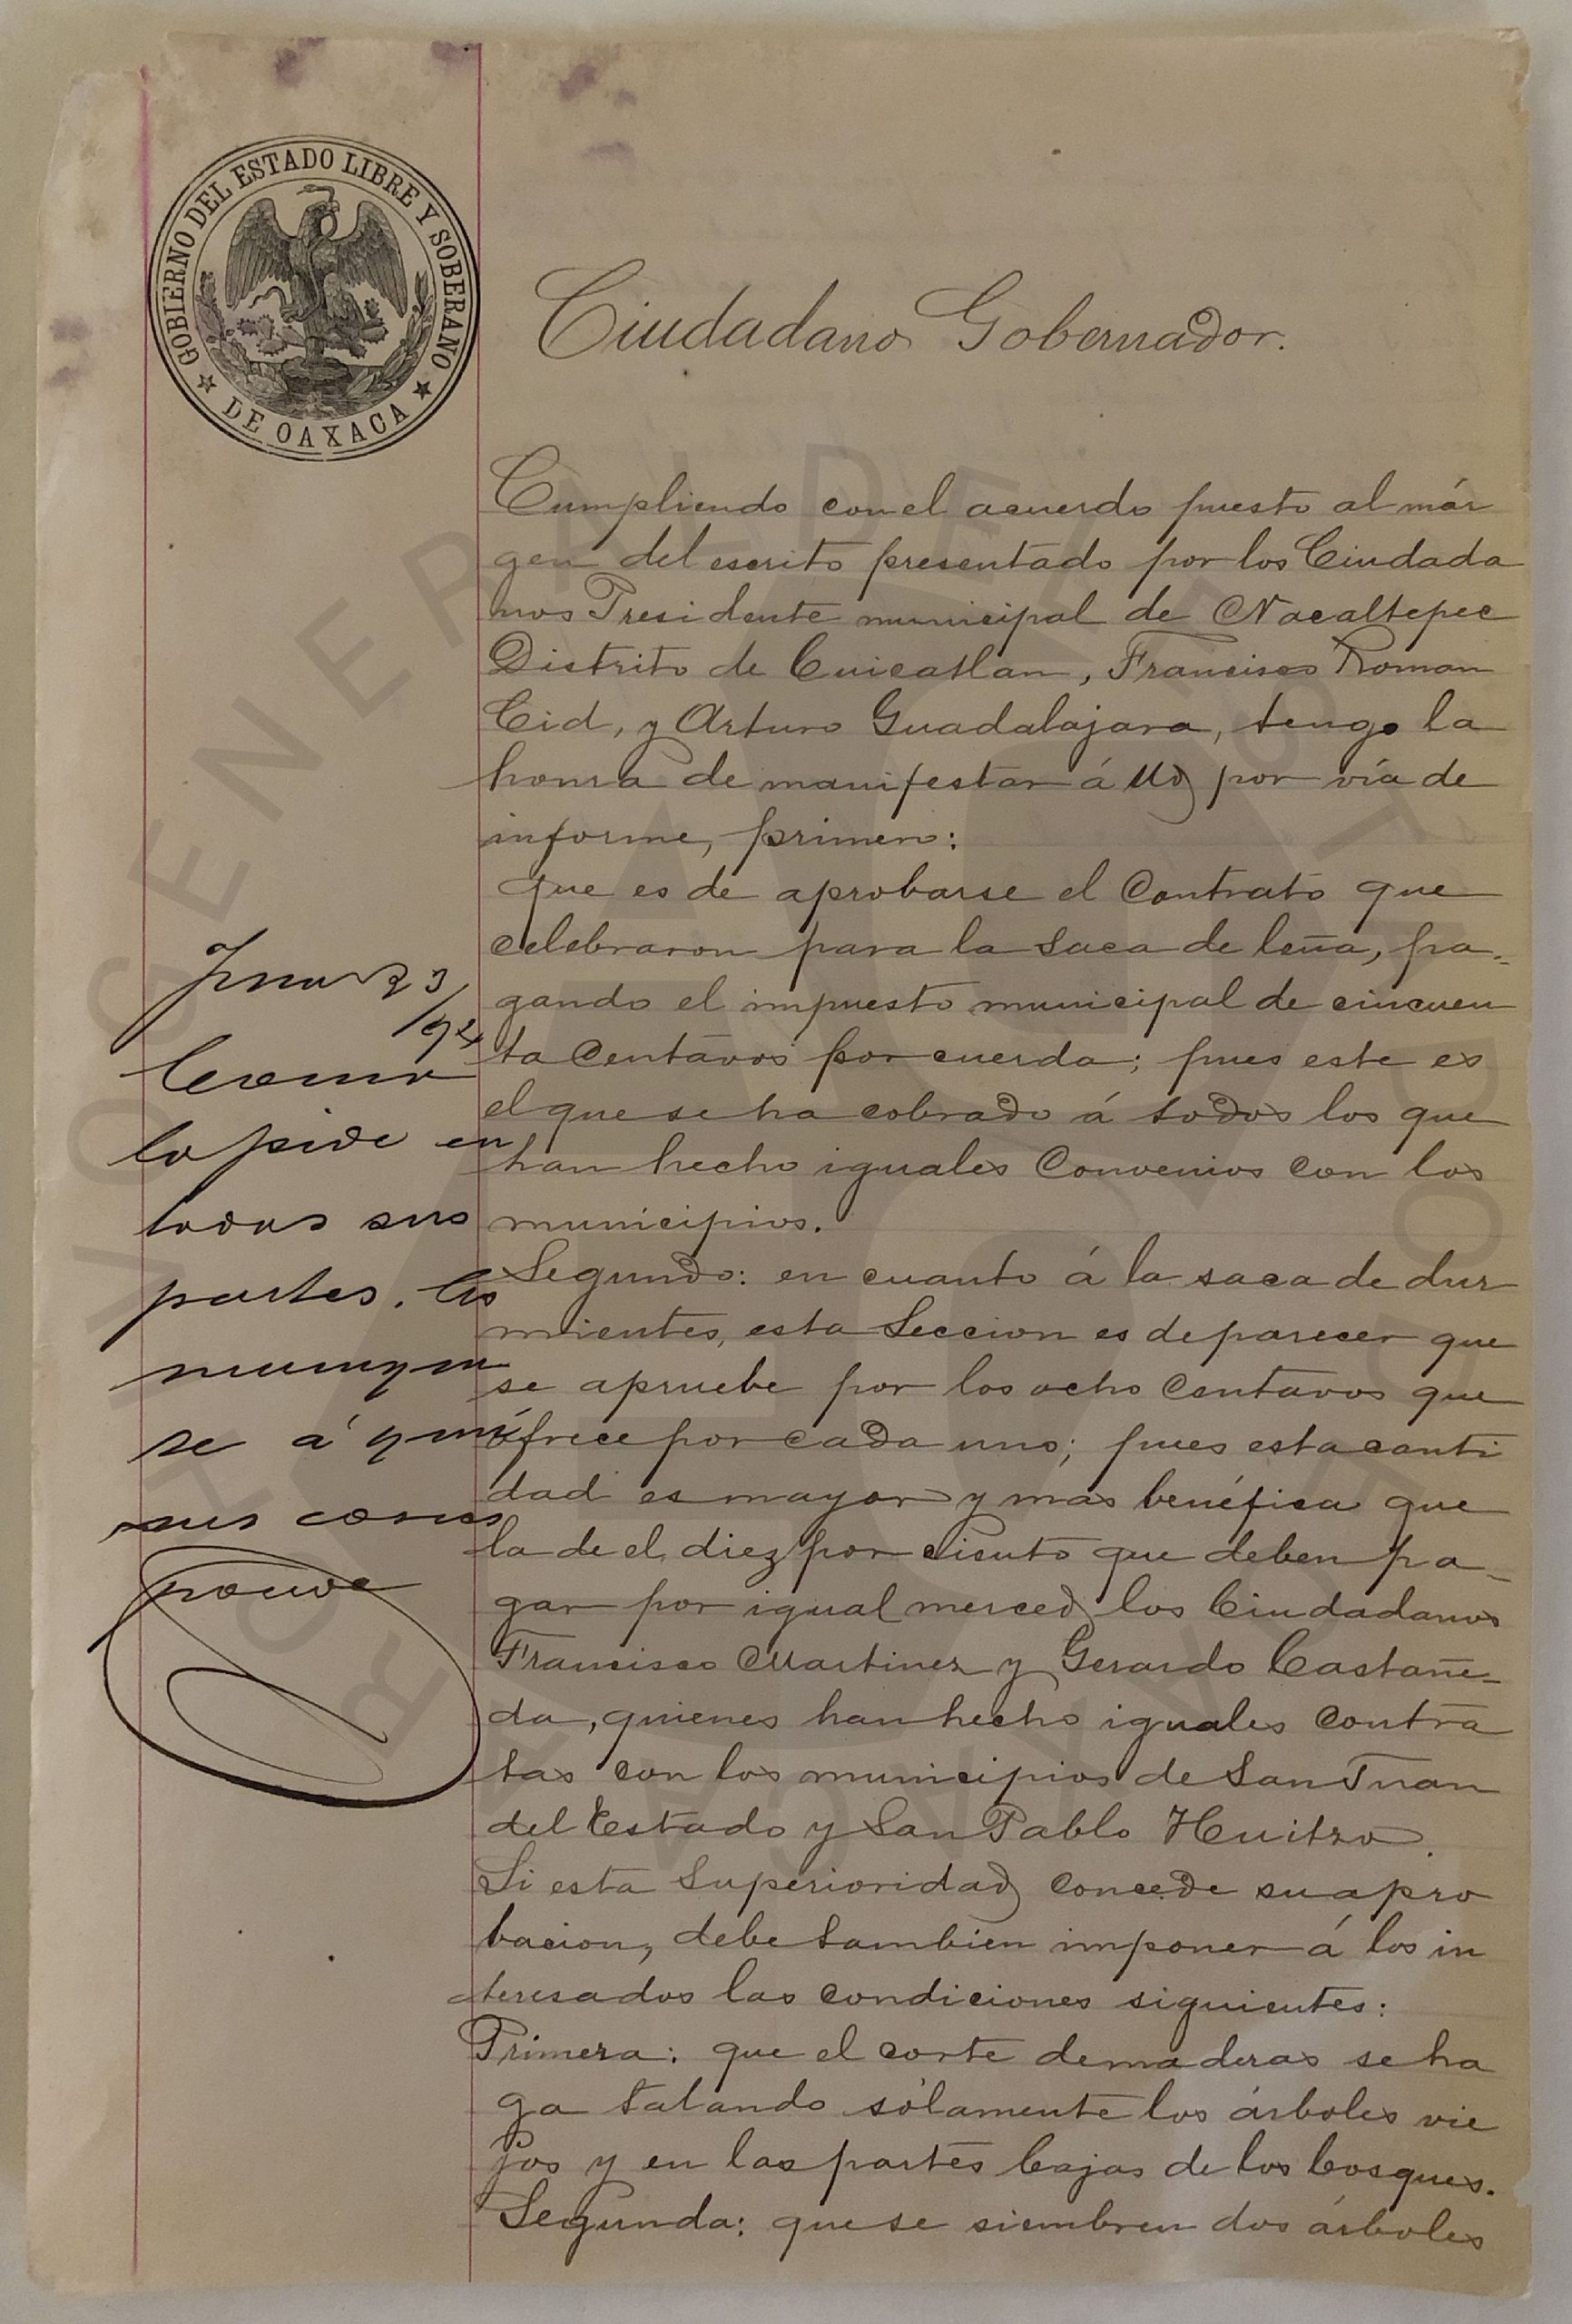 GOBIERNO DEL ESTADO LIBRE Y SOBERANO
DE OAXACA
Ciudadano Gobernador.
Cumpliendo con el acuerdo puesto al már
gen del escrito presentado por los Ciudada
nos Presidente municipal de Nacaltepec
Distrito de Cuicatlan, Francisco Roman
Cid, y Arturo Guadalajara, tengo la
honra de manifestar á Ud por vía de
informe, primero:
que es de aprobarse el Contrato que
celebraron para la saca de leña, pa-
gando el impuesto municipal de cincuen
ta Centavos por cuerda; pues este es
el que se ha cobrado á todos los que
han hecho iguales Convenios con los
municipios.
Segundo: en cuanto á la saca de dur
mientes, esta Seccion es de parecer que
se apruebe por los ocho Centavos que
ofrece por cada uno; pues esta canti
dad es mayor y mas benéfica que
la de el diez por ciento que deben pa-
gar por igual merced los Ciudadanos
Francisco Martinez y Gerardo Castañe-
da, quienes han hecho iguales Contra
tas con los municipios de San Juan
del Estado y San Pablo Huitzo.
Si esta Superioridad concede su apro
bacion, debe tambien imponer á los in
teresados las condiciones siguientes:
Primera: que el corte de maderas se ha
ga talando sólamente los árboles vie
jos y en las partes bajas de los bosques.
Segunda: que se siembren dos árboles
Como
lo pide en
todas sus
partes.
se á
ARCHIVO GENERAL DEL ESTADO DE OAXACA